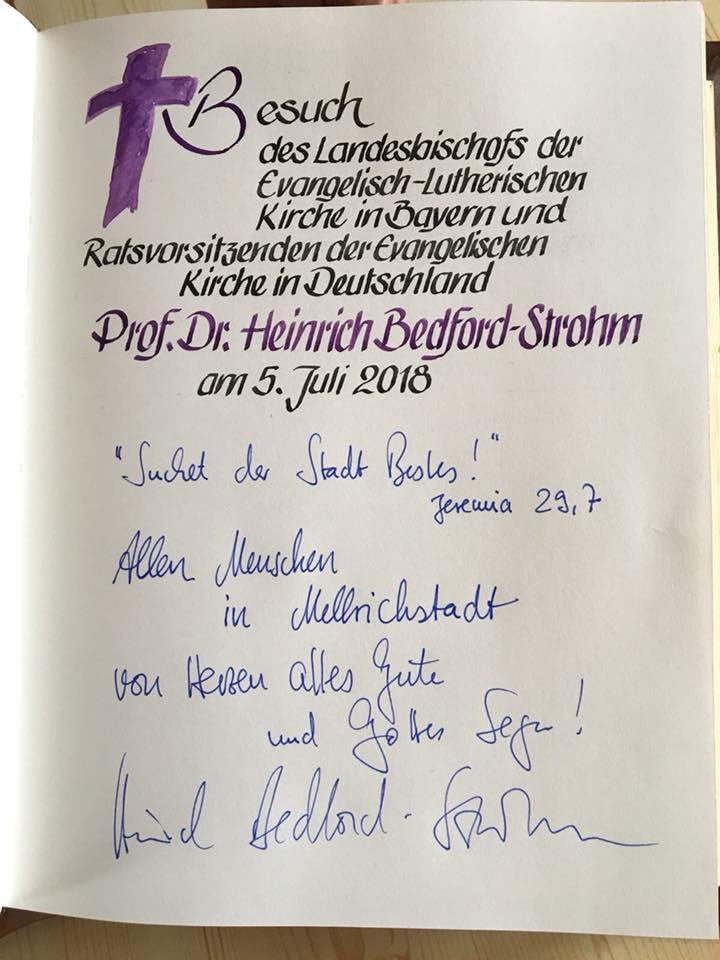 Besuch
des Landesbischofs der
Evangelisch-Lutherischen
Kirche in Bayern und
Ratsvorsitzenden der Evangelischen
Kirche in Deutschland
Prof. Dr. Heinrich Bedford-Strohm
am 5. Juli 2018
"Suchet der Stadt Bestes!"
Jeremia 29,7
Allen Menschen
in Mellrichstadt
von Herzen alles Gute
und Gottes Segen!
Heinrich Bedford-Strohm